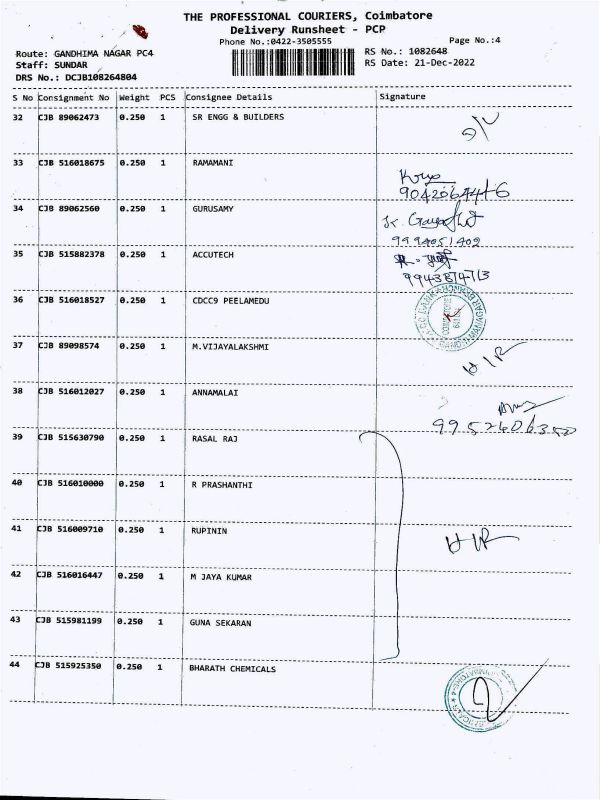 THE PROFESSIONAL COURIERS, Coimbatore
Delivery Runsheet - PCP
Phone No.:0422-3505555
Page No.:4
Route: GANDHIMA NAGAR PC4
RS No.: 1082648
Staff: SUNDAR
RS Date: 21-Dec-2022
DRS No.: DCJB108264804
S No Consignment No Weight PCS Consignee Details Signature
32 CJB 89062473 0.250 1 SR ENGG & BUILDERS
33 CJB 516018675 0.250 1 RAMAMANI
34 CJB 89062560 0.250 1 GURUSAMY
9994051402
35 CJB 515882378 0.250 1 ACCUTECH
36 CJB 516018527 0.250 1 CDCC9 PEELAMEDU
37 CJB 89098574 0.250 1 M.VIJAYALAKSHMI
38 CJB 516012027 0.250 1 ANNAMALAI
39 CJB 515630790 0.250 1 RASAL RAJ
40 CJB 516010000 0.250 1 R PRASHANTHI
41 CJB 516009710 0.250 1 RUPININ
42 CJB 516016447 0.250 1 M JAYA KUMAR
43 CJB 515981199 0.250 1 GUNA SEKARAN
44 CJB 515925350 0.250 1 BHARATH CHEMICALS